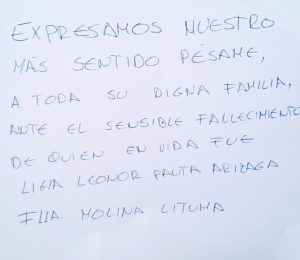 EXPRESAMOS NUESTRO
MÁS SENTIDO PÉSAME,
A TODA SU DIGNA FAMILIA,
ANTE EL SENSIBLE FALLECIMIENTO
DE QUIEN EN VIDA FUÉ
LIGIA LEONOR PAUTA ARIZAGA
FLIA MOLINA LITUMA